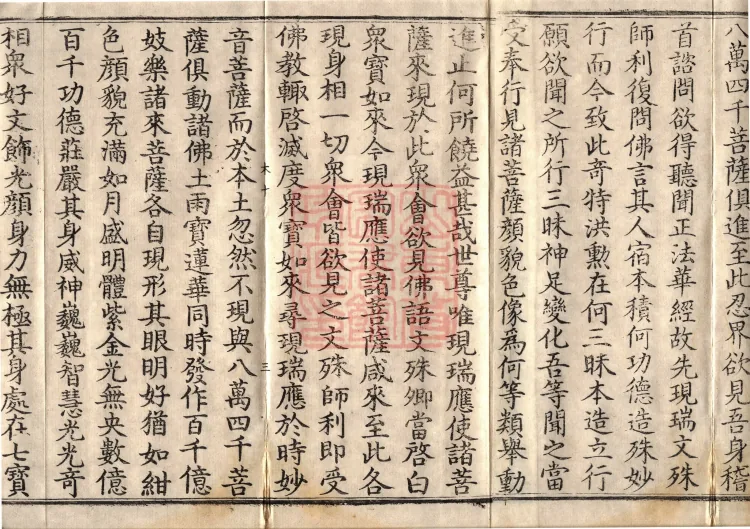 八萬四千菩薩俱進至此忍界欲見吾身稽
首諮問欲得聽聞正法華經故先現瑞文殊
師利復問佛言其人宿本積何功德造殊妙
行而今致此奇特洪勳在何三昧本造立行
願欲聞之所行三昧神足變化吾等聞之當
受奉行見諸菩薩顏貌色像為何等類舉動
進止何所饒益甚哉世尊唯現瑞應使諸菩
薩來現於此眾會欲見佛語文殊卿當啓白
眾寶如來今現瑞應使諸菩薩咸來至此各
現身相一切眾會皆欲見之文殊師利即受
佛教輙啓滅度眾寶如來尋現瑞應於時妙
音菩薩而於本土忽然不現與八萬四千菩
薩俱動諸佛土雨寶蓮華同時發作百千億
妓樂諸來菩薩各自現形其眼明好猶如紺
色顏貌充滿如月盛明體紫金光無央數億
百千功德莊嚴其身威神巍巍智慧光光奇
相眾好文飾光顏身力無極其身處在七寶